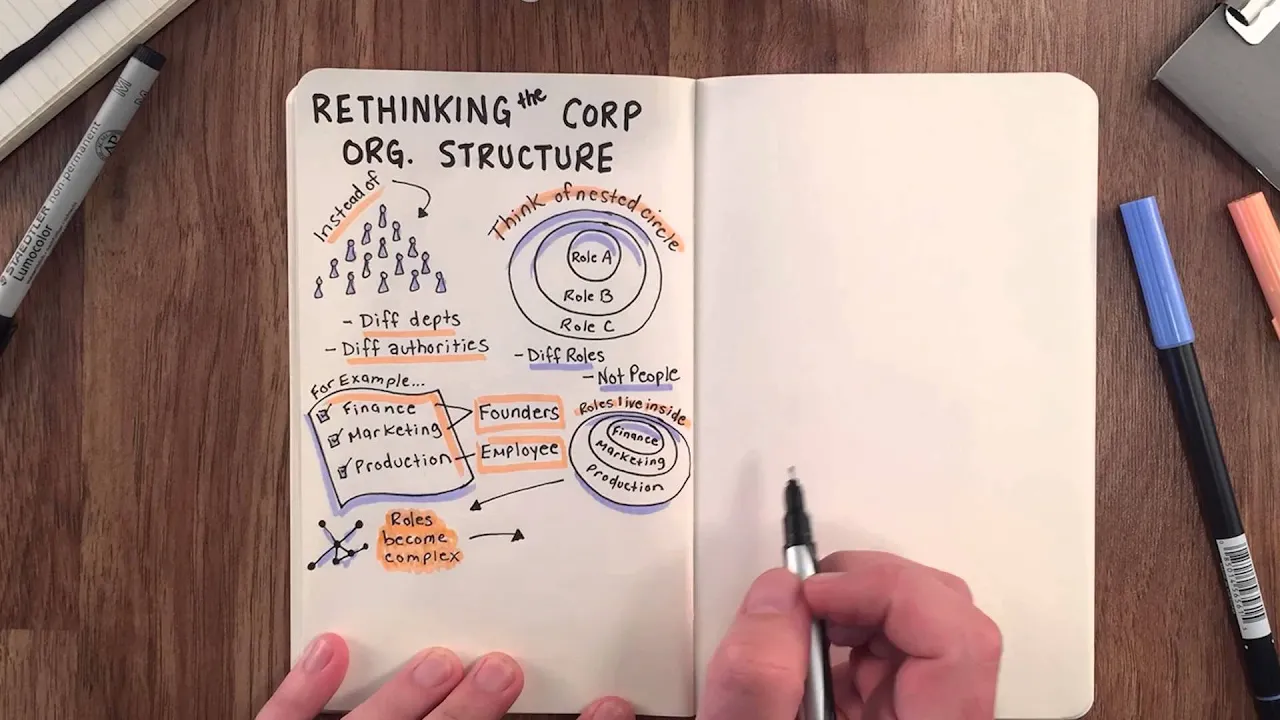 RETHINKING the CORP
ORG. STRUCTURE
Instead of
- Diff depts
- Diff authorities
Think of nested circle
Role A
Role B
Role C
- Diff Roles
- Not People
For Example...
Finance
Marketing
Production
Founders
Employee
Roles live inside
Finance
Marketing
Production
Roles
become
complex
STAEDTLER non permanent
Lumocolor
M